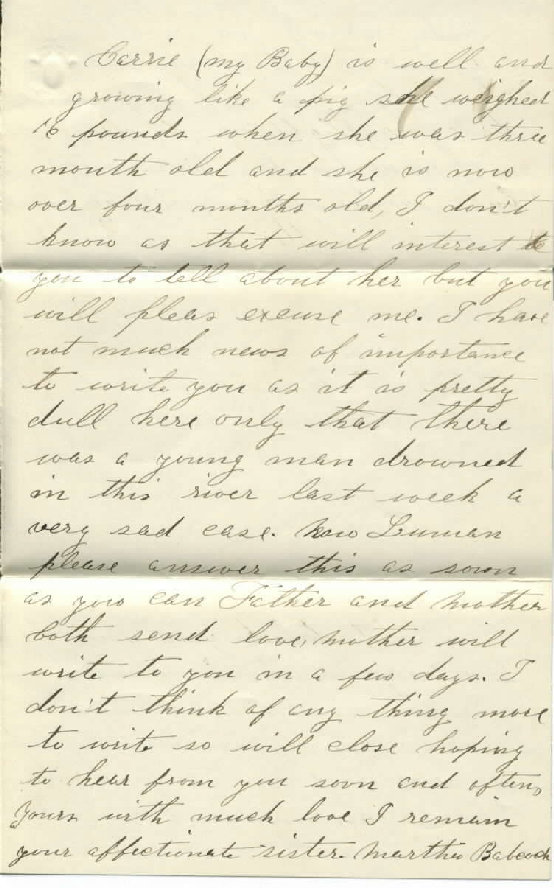 Carrie (my Baby) is well and
growing like a pig she weighed
16 pounds when she was three
month old and she is now
over four months old, I don't
know as that will interest
you to tell about her but you
will pleas excuse me. I have
not much news of importance
to write you as it is pretty
dull here only that there
was a young man drowned
in this river last week a
very sad case. Now Truman
please answer this as soon
as you can Father and Mother
both send love, Mother will
write to you in a few days. I
don't think of any thing more
to write so will close hoping
to hear from you soon and often,
Yours with much love I remain
your affectionate sister. Martha Babcock